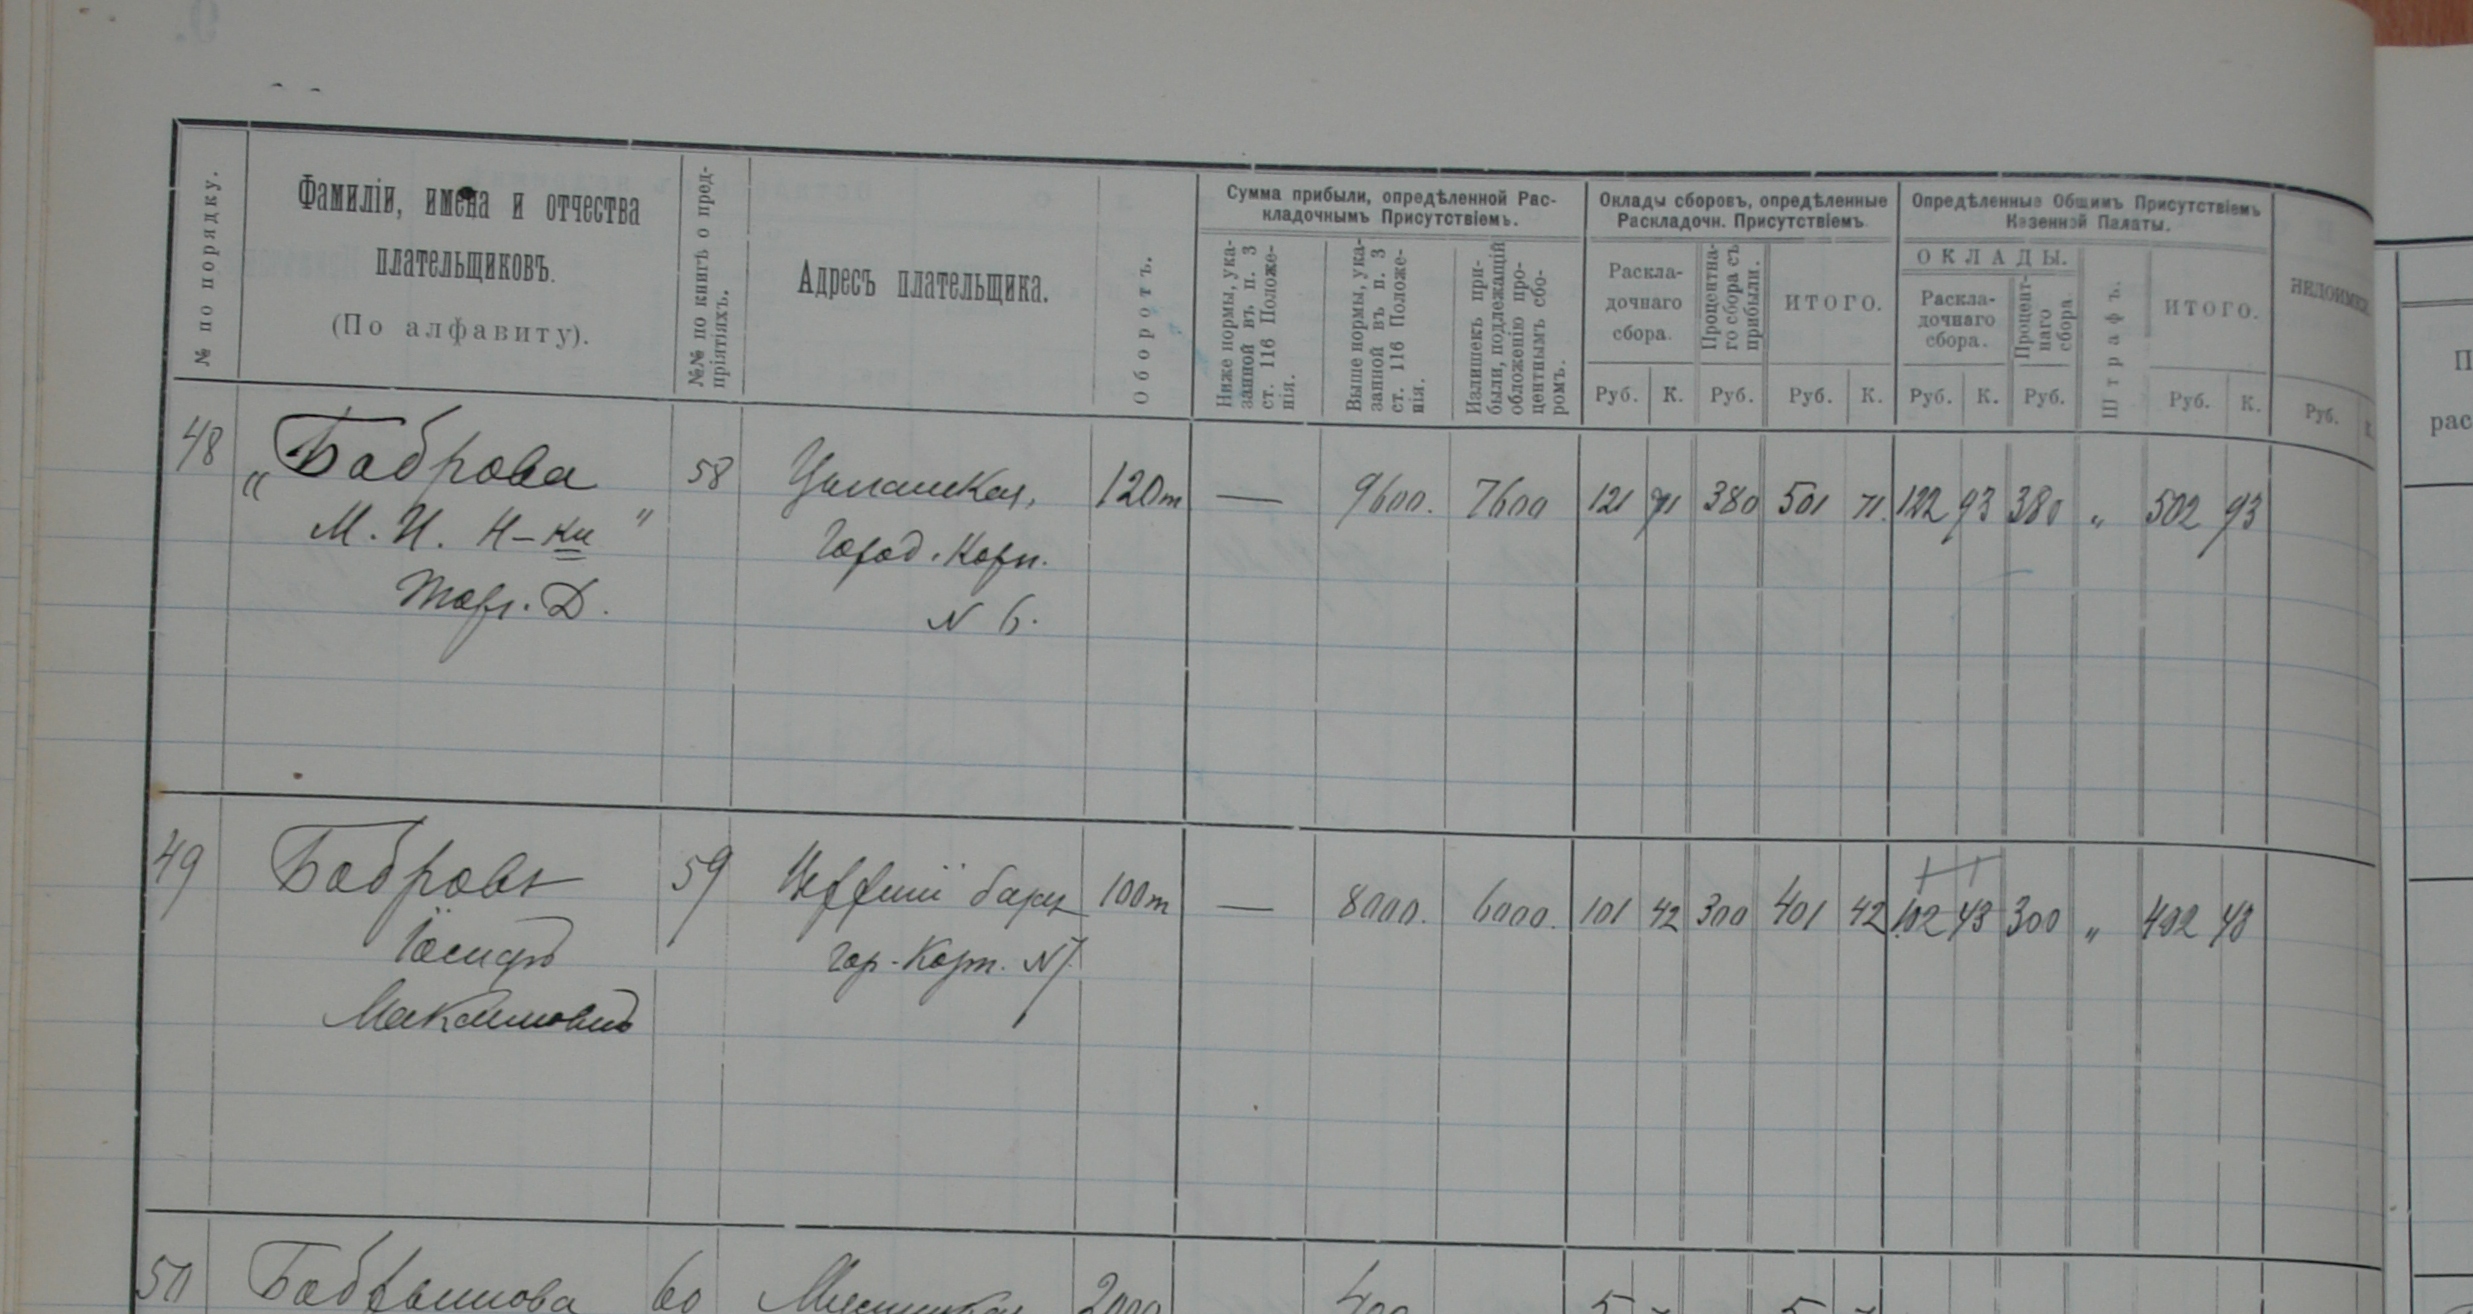 № по порядку.
Фамиліи, имена и отчества
плательщиковъ.
(По алфавиту).
№№ по книгѣ о пред-
пріятіяхъ.
Адресъ плательщика.
Оборотъ.
Сумма прибыли, опредѣленной Рас-
кладочнымъ Присутствіемъ.
Ниже нормы, ука-
занной въ п. 3
ст. 116 Положе-
нія.
Выше нормы, ука-
занной въ п. 3
ст. 116 Положе-
нія.
Излишекъ при-
были, подлежащій
обложенію про-
центнымъ сбо-
ромъ.
Оклады сборовъ, опредѣленные
Раскладочн. Присутствіемъ
Раскла-
дочнаго
сбора.
Процентна-
го сбора съ
прибыли.
ИТОГО.
Опредѣленные Общимъ Присутствіемъ
Казенной Палаты.
ОКЛАДЫ.
Раскла-
дочнаго
сбора.
Процент-
наго
сбора
Штрафъ.
ИТОГО.
НЕДОИМКИ.
Руб. К. Руб. Руб. К. Руб. К. Руб. Руб. К. Руб. К.
48 „Боброва 58 120т — 9600. 7600 121 71 380 501 71. 122 93 380 „ 502 93
М. И. Н-ки"
Торг. Д.
Город. Корп.
N 6.
49 Бобровъ 59 100т — 8000. 6000. 101 42 300 401 42 102 43 300 „ 402 43
Іосифъ
Максимовичъ
гор. Корп. N 7
50 60 Мясницкая 2000 400 5 5
П
рас